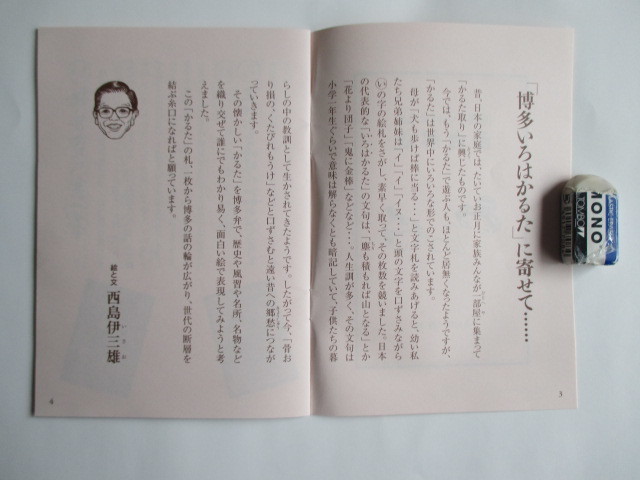 「博多いろはかるた」に寄せて……
昔、日本の家庭では、たいていお正月に家族みんなが一部屋に集まって
「かるた取り」に興じたものです。
今では、もう「かるた」で遊ぶ人も、ほとんど居無くなったようですが、
「かるた」は世界中にいろいろな形でのこされています。
母が「犬も歩けば棒に当る…」と文字札を読みあげると、幼い私
たち兄弟姉妹は「イ」「イ」「イヌ…」と頭の文字を口ずさみながら
(い)の字の絵札をさがし、素早く取って、その枚数を競いました。日本
の代表的な「いろはかるた」の文句は、「塵も積もれば山となる」とか
「花より団子」「鬼に金棒」などなど…。人生訓が多く、その文句は
小学一年生ぐらいで意味は解らなくとも暗記していて、子供たちの暮
3
らしの中の教訓として生かされてきたようです。したがって今、「骨お
り損の、くたびれもうけ」などと口ずさむと遠い昔への郷愁につなが
っていきます。
その懐かしい「かるた」を博多弁で、歴史や風習や名所、名物など
を織り交ぜて誰にでもわかり易く、面白い絵で表現してみようと考
えました。
この「かるた」の札、一枚から博多の話の輪が広がり、世代の断層を
結ぶ糸口になればと願っています。
絵と文 西島伊三雄
4
MONO